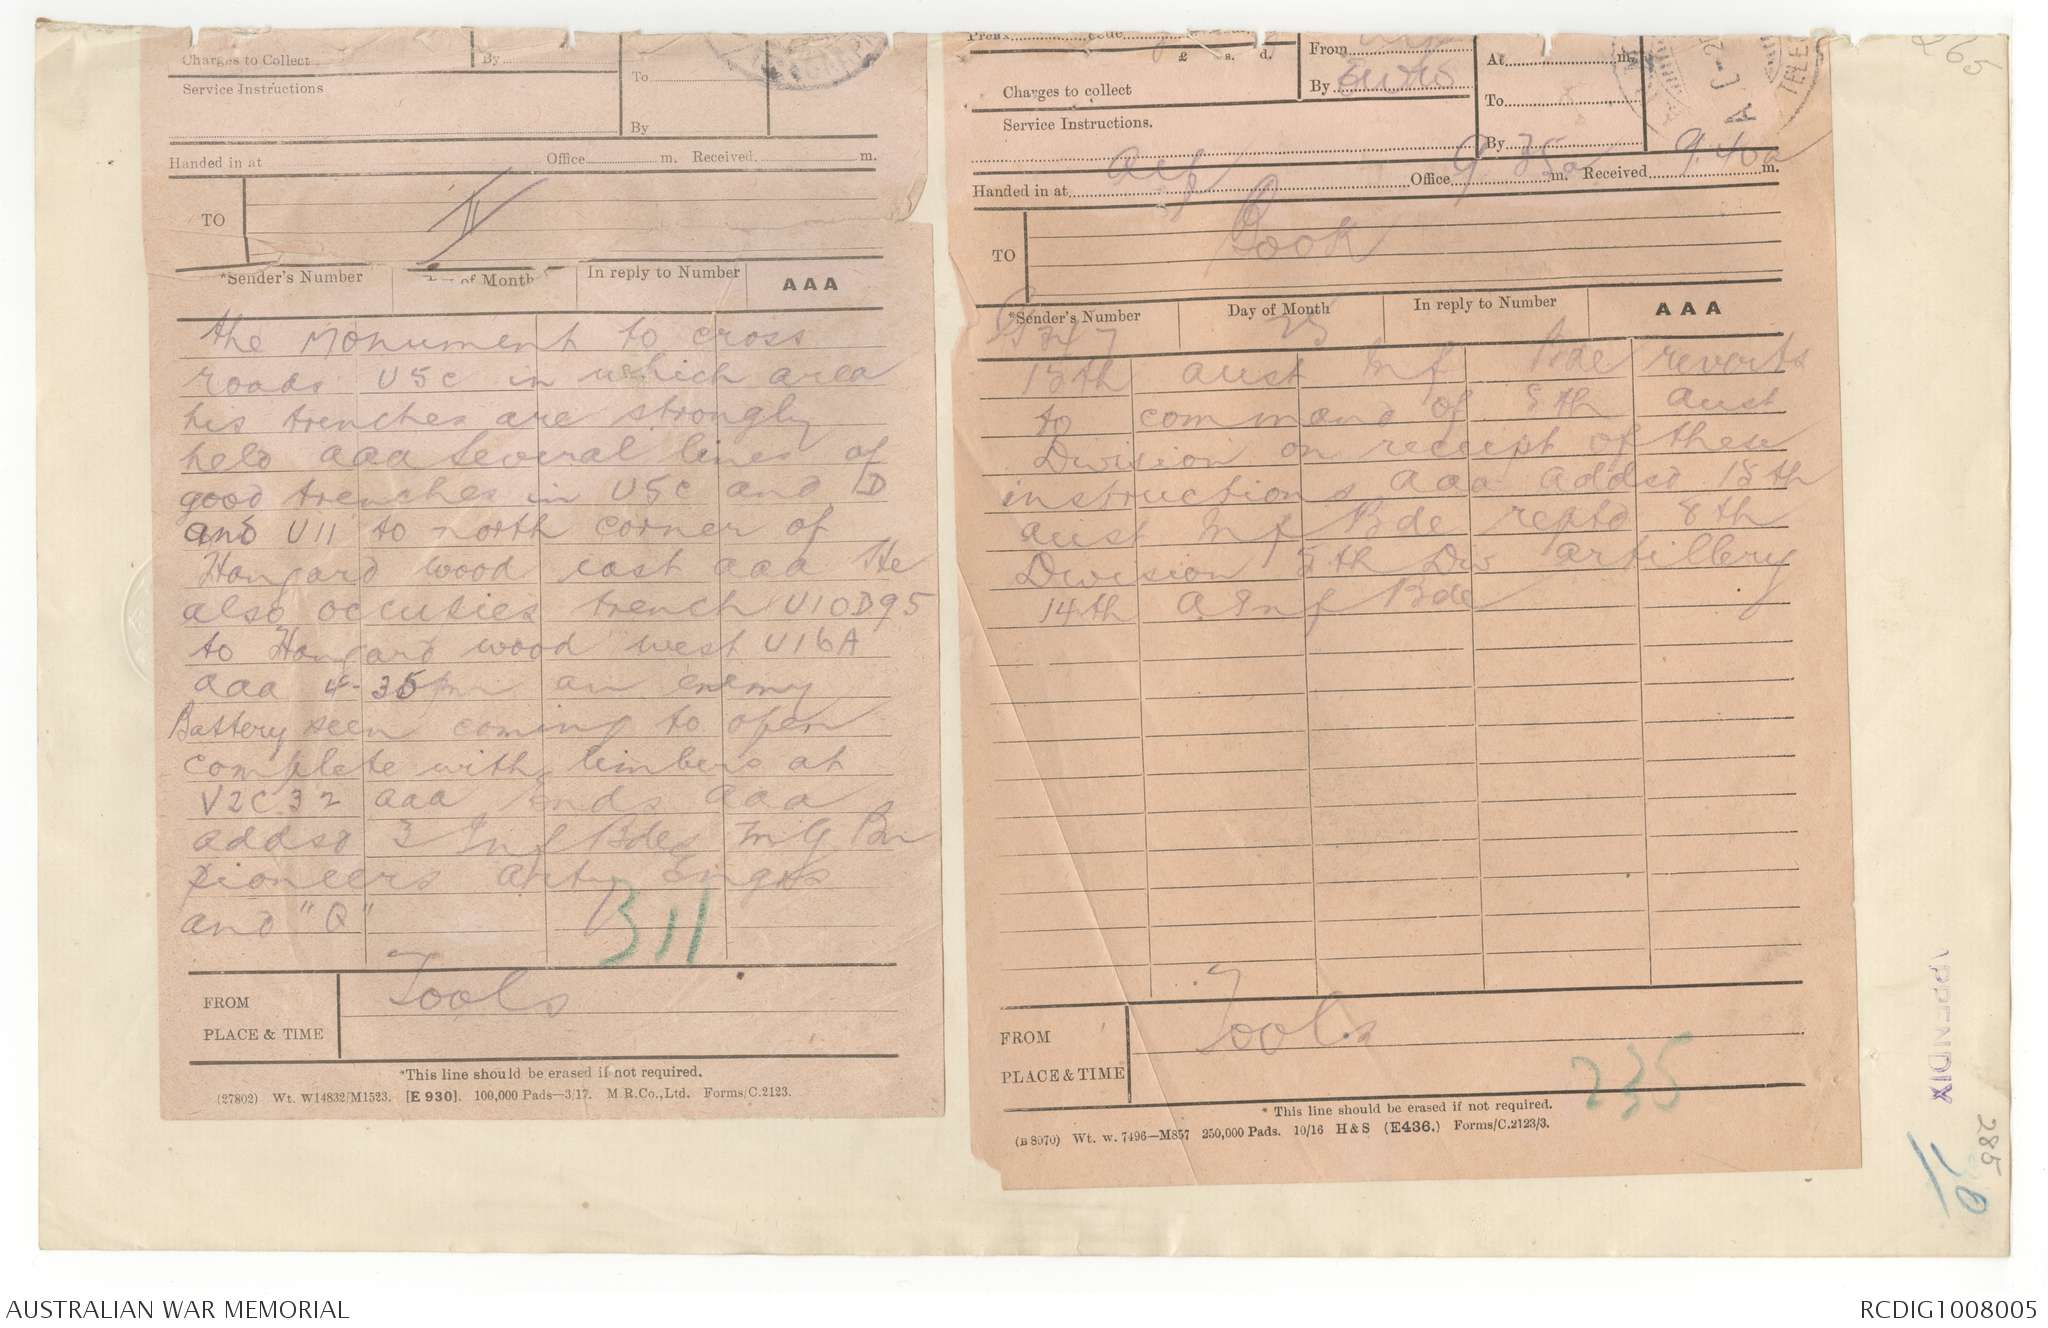 Charges to Collect
By
To
Service Instructions
By
Handed in at Office m. Received. m.
TO
II
*Sender's Number Day of Month In reply to Number AAA
the Monument to cross
roads U5c in which area
his trenches are strongly
held aaa Several lines of
good trenches in U5c and D
and U11 to north corner of
Hangard wood east aaa He
also occupies trench U10D95
to Hangard wood west U16A
aaa 4-35pm an enemy
Battery seen coming to open
complete with limbers at
V2C32 aaa Ends aaa
addsd 3 Inf Bdes MG Bn
pioneers arty Engrs
and "Q"
B11
FROM Tools
PLACE & TIME
*This line should be erased if not required.
(27802) Wt. W14832/M1523. [E 930]. 100,000 Pads—3/17. M.R.Co.,Ltd. Forms/C.2123.
Prefix code
£ s. d.
From
At m.
Charges to collect
By
To
Service Instructions.
By
Handed in at Office 9.35a m. Received 9.40a m.
TO Book
*Sender's Number Day of Month In reply to Number AAA
G347 25
15th aust Inf Bde reverts
to command of 5th aust
Division on receipt of these
instructions aaa addsd 15th
aust Inf Bde reptd 8th
Division 5th Div artillery
14th A Inf Bde
FROM Tools
PLACE & TIME
235
* This line should be erased if not required.
(B 8070) Wt. w. 7496—M857 250,000 Pads. 10/16 H & S (E436.) Forms/C.2123/3.
265
APPENDIX
285
AUSTRALIAN WAR MEMORIAL
RCDIG1008005